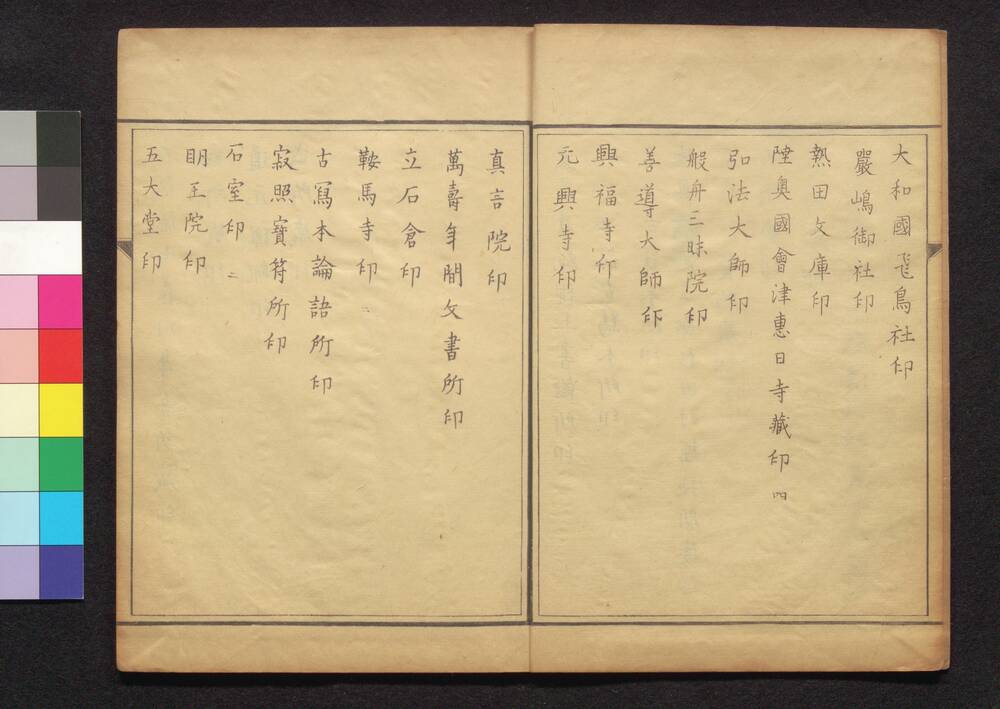 大和國飛鳥社印
嚴嶋御社印
熱田文庫印
陸奥國會津惠日寺藏印 四
弘法大師印
般舟三昧院印
善導大師印
興福寺印
元興寺印
真言院印
萬壽年間文書所印
立石倉印
鞍馬寺印 二
古冩本論語所印
寂照寶符所印
石室印 二
明王院印
五大堂印